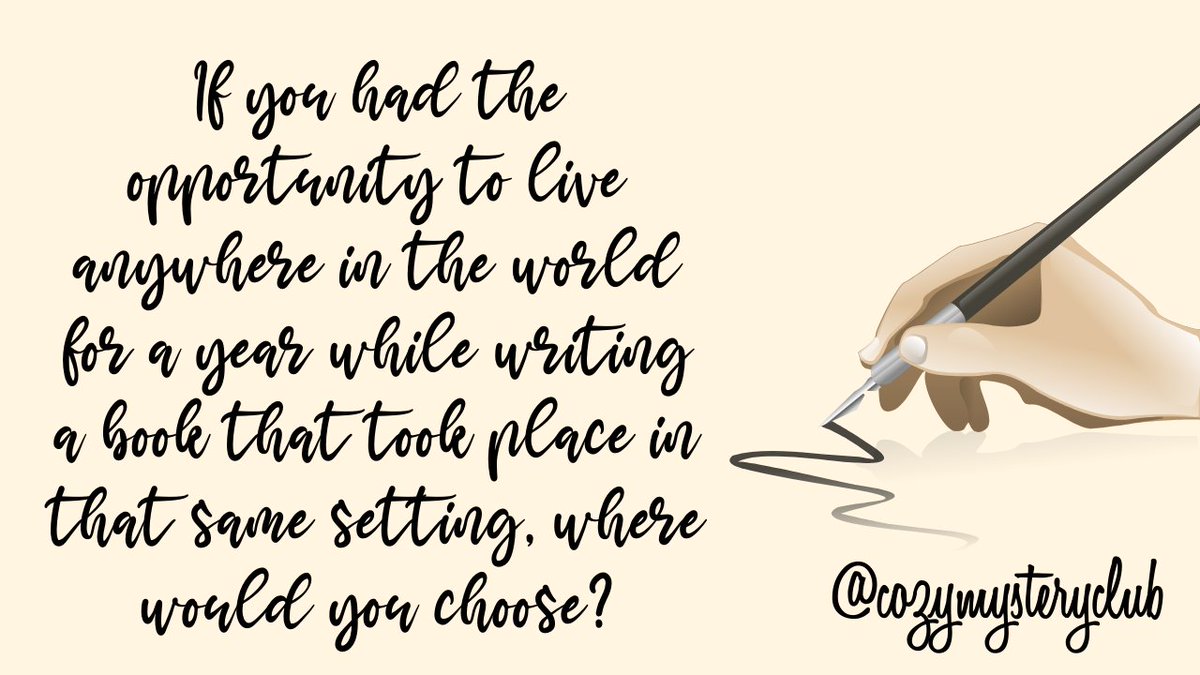 If you had the
opportunity to live
anywhere in the world
for a year while writing
a book that took place in
that same setting, where
would you choose?
@cozymysteryclub